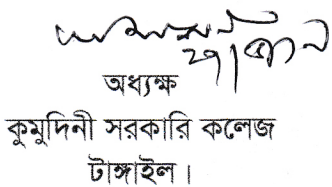 অধ্যক্ষ
কুমুদিনী সরকারি কলেজ
টাঙ্গাইল।